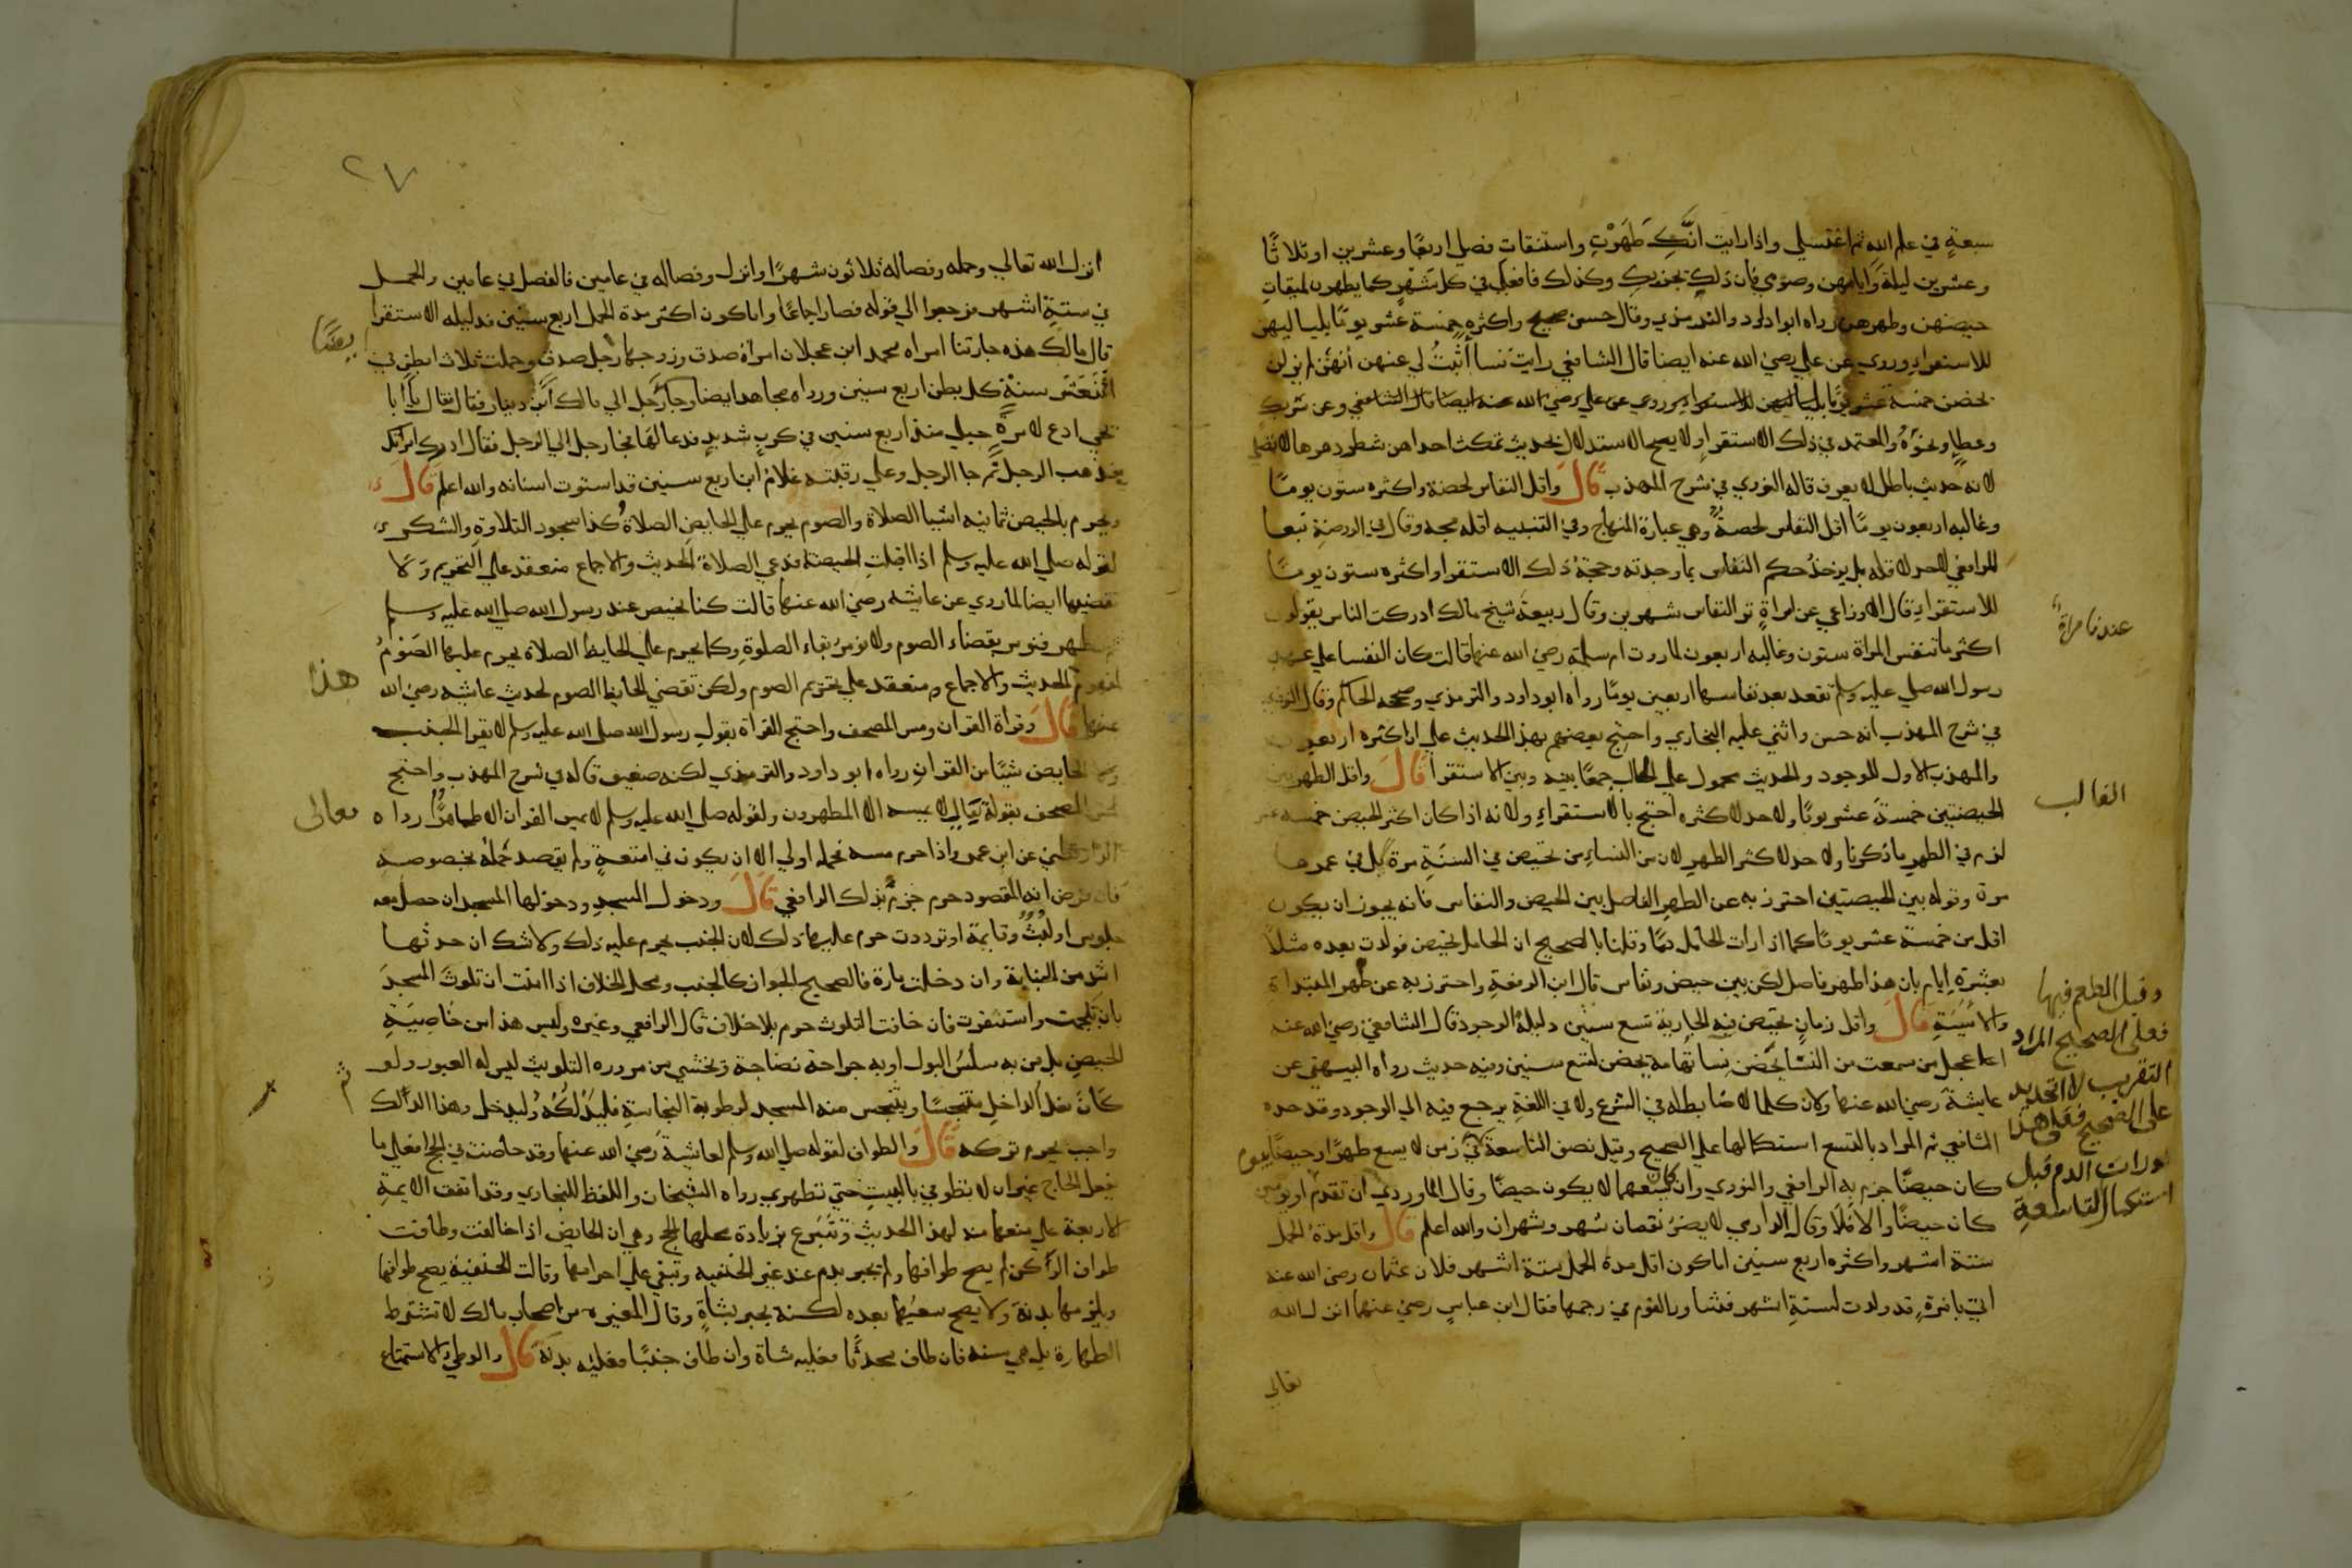 سبعة في علم الله ثم اغتسلي واذا رايت انك طهرت واستنقات فصلي اربعا وعشرين او ثلاثا
وعشرين ليلة وايامهن وصومي فان ذلك يجزيك وكذلك فافعلي في كل شهر كما يطهرن لميقات
حيضهن وطهرهن رواه ابو داود والترمذي وقال حسن صحيح واكثره خمسة عشر يوما بلياليهن
للاستقراء وروي عن علي رضي الله عنه ايضا قال الشافعي رايت نسا اثبت لي عنهن انهن لم يزلن
يحضن خمسة عشر يوما بلياليهن للاستقراء وروي عن علي رضي الله عنه ايضا قال الشافعي وعن شريك
وعطا ونحوه والمعتمد في ذلك الاستقراء ولا يصح الاستدلال بحديث تمكث احداهن شطر دهرها لا تصلي
لانه حديث باطل لا يعرف قاله النووي في شرح المهذب قال واقل النفاس لحضة واكثره ستون يوما
وغالبه اربعون يوما اقل النفاس لحضة وهي عبارة المنهاج وفي التنبيه اقله مجة وقال في الروضة تبعا
للرافعي لاحد لاقله بل يوخذ حكم النفاس بما وجدته وحجة ذلك الاستقرا واكثره ستون يوما
للاستقراء قال الاوزاعي عن امراة تر النفاس شهرين وقال ربيعة شيخ مالك ادركت الناس يقولون
عندنا مراة
اكثر ما تنفس المراة ستون وغالبه اربعون لما روت ام سلمة رضي الله عنها قالت كان النفسا علي عهد
رسول الله صلي عليه وسلم تقعد بعد نفاسها اربعين يوما رواه ابو داود والترمذي وصححه الحاكم وقال النووي
في شرح المهذب انه حسن واثني عليه البخاري واحتج بعضهم بهذا الحديث علي ان اكثره اربعون
والمهذب الاول للوجود والحديث محمول علي الغالب جمعا بينه وبين الاستقرا قال واقل الطهر بين
الغالب
الحيضتين خمسة عشر يوما ولا حد لاكثره احتج بالاستقراء ولانه اذا كان اكثر الحيض خمسة عشر
لزم في الطهر ما ذكرنا ولا حد لاكثر الطهر لان من النساء من تحيض في السنة مرة بل في عمرها
مرة وقوله بين الحيضتين احترز به عن الطهر الفاصل بين الحيض والنفاس فانه يجوز ان يكون
اقل من خمسة عشر يوما كما اذا رات الحامل دما وقلنا بالصحيح ان الحامل تحيض فولدت بعده مثلا
بعشرة ايام بان هذا طهر فاصل لكن بين حيض ونفاس قال ابن الرفعة واحترز به عن طهر المبتداة
والايسة قال واقل زمان تحيض فيه الجارية تسع سنين دليله الوجود قال الشافعي رضي الله عنه
اعجل من سمعت من النسا يحضن نسا تهامة يحضن لتسع سنين وفيه حديث رواه البيهقي عن
عايشة رضي الله عنها ولان كلما لا ضابط له في الشرع ولا في اللغة يرجع فيه الي الوجود وقد حده
الشافعي ثم المراد بالتسع استكمالها علي الصحيح وقيل نصف التاسعة في زمن لا يسع طهرا وحيضا بيوم
كان حيضا جزم به الرافعي والنووي وان كان يسعهما لا يكون حيضا وقال الماوردي ان تقدم او يومين
كان حيضا والا فلا وقال الدارمي لا يضر نقصان شهر وشهران والله اعلم قال واقل مدة الحمل
ستة اشهر واكثره اربع سنين اما كون اقل مدة الحمل ستة اشهر فلان عثمان رضي الله عنه
اتي بامرة قد ولدت لستة اشهر فشاور القوم في رجمها فقال ابن عباس رضي عنهما انزل الله
وقيل الطعم فيها
فعلي الصحيح المراد
التقريب لا التحديد
علي الصحيح فعلي هذا
لو رات الدم قبل
استكمال التاسعة
تعالي
٢٧
انزل الله تعالي وحمله وفصاله ثلاثون شهرا وانزل وفصاله في عامين فالفصل في عامين والحمل
في ستة اشهر فرجعوا الي قوله فصار اجماعا واما كون اكثر مدة الحمل اربع سنين فدليله الاستقرا
قال مالك هذه جارتنا امراه محمد ابن عجلان امراة صدق وزوجها رجل صدق وحملت ثلاث ابطن في
اثنتي عشر سنة كل بطن اربع سنين ورواه مجاهد ايضا وجا رجل الي مالك ابن دينار فقال فقال يا ابا
يحي ادع لامرة حبلي منذ اربع سنين في كرب شديد فدعا لها فجا رجل الي الرجل فقال ادرك امراتك
فذهب الرجل ثم جا الرجل وعلي رقبته غلام ابن اربع سنين قد استوت اسنانه والله اعلم قال
ويحرم بالحيض ثمانيه اشيا الصلاة والصوم يحرم علي الحايض الصلاة وكذا سجود التلاوة والشكر
لقوله صلي الله عليه وسلم اذا اقبلت الحيضة فدعي الصلاة الحديث والاجماع منعقد علي التحريم ولا
تقضيها ايضا لما روي عن عايشه رضي الله عنها قالت كنا نحيض عند رسول الله صلي الله عليه وسلم
ثم نطهر فنومر بقضاء الصوم ولا نومر بقاء الصلوة وكما يحرم علي الحايض الصلاة يحرم عليها الصوم
لمفهوم الحديث والاجماع منعقد علي تحريم الصوم ولكن تقضي الحايض الصوم لحديث عايشه رضي الله
هذا
عنها قال وقراة القران ومس المصحف واحتج للقراة بقول رسول الله صلي الله عليه وسلم لا يقرا الجنب
ولا الحايض شيا من القران رواه ابو داود والترمذي لكنه ضعيف قاله في شرح المهذب واحتج
لمس المصحف بقولة تعالي لا يمسه الا المطهرون ولقوله صلي الله عليه وسلم لا يمس القران الا طاهرا رواه
تعالي
الدارقطني عن ابن عمر واذا حرم مسه فحمله اولي الا ان يكون في امتعة ولم يقصد حمله بخصوصه
فان فرض انه المقصود حرم جزم بذلك الرافعي قال ودخول المسجد ودخولها المسجد ان حصل معه
جلوس او لبث وقايمة او ترددت حرم عليها ذلك لان الجنب يحرم عليه ذلك ولا شك ان حدثها
اشد من الجنابة وان دخلت مارة فالصحيح الجواز كالجنب ومحل الخلاف اذا امنت ان تلوث المسجد
بان تلجمت واستثفرت فان خافت التلوث حرم بلا خلاف قال الرافعي وغيره وليس هذا من خاصية
الحيض بل من به سلس البول او به جراحة نضاجة وتخشي من مروره التلويث ليس له العبور ولو
ثم
كان نعل الداخل متنجسا ويتنجس منه المسجد لرطوبة النجاسة فليدلكه وليدخل وهذا الدالك
واجب يحرم تركه قال والطواف لقوله صلي الله وسلم لعايشة رضي الله عنها وقد حاضت في الحج افعلي ما
يفعل الحاج غير ان لا تطوفي بالبيت حتي تطهري رواه الشيخان واللفظ للبخاري وقد اتفق الايمة
الاربعة علي منعها منه لهذا الحديث وتتبرع بزيادة محلها الحج وهي ان الحايض اذا خالفت وطافت
طواف الركن لم يصح طوافها ولم يجبر بدم عند غير الحنفيه وتبقي علي احرامها وقالت الحنفية يصح طوافها
ويلزمها بدنة ولا يصح سعيها بعده لكنه يجبر بشاة وقال المغيره من اصحاب مالك لا تشترط
الطهارة بل هي سنه فان طاف محدثا فعليه شاة وان طاف جنبا فعليه بدنة قال والوطي والاستمتاع